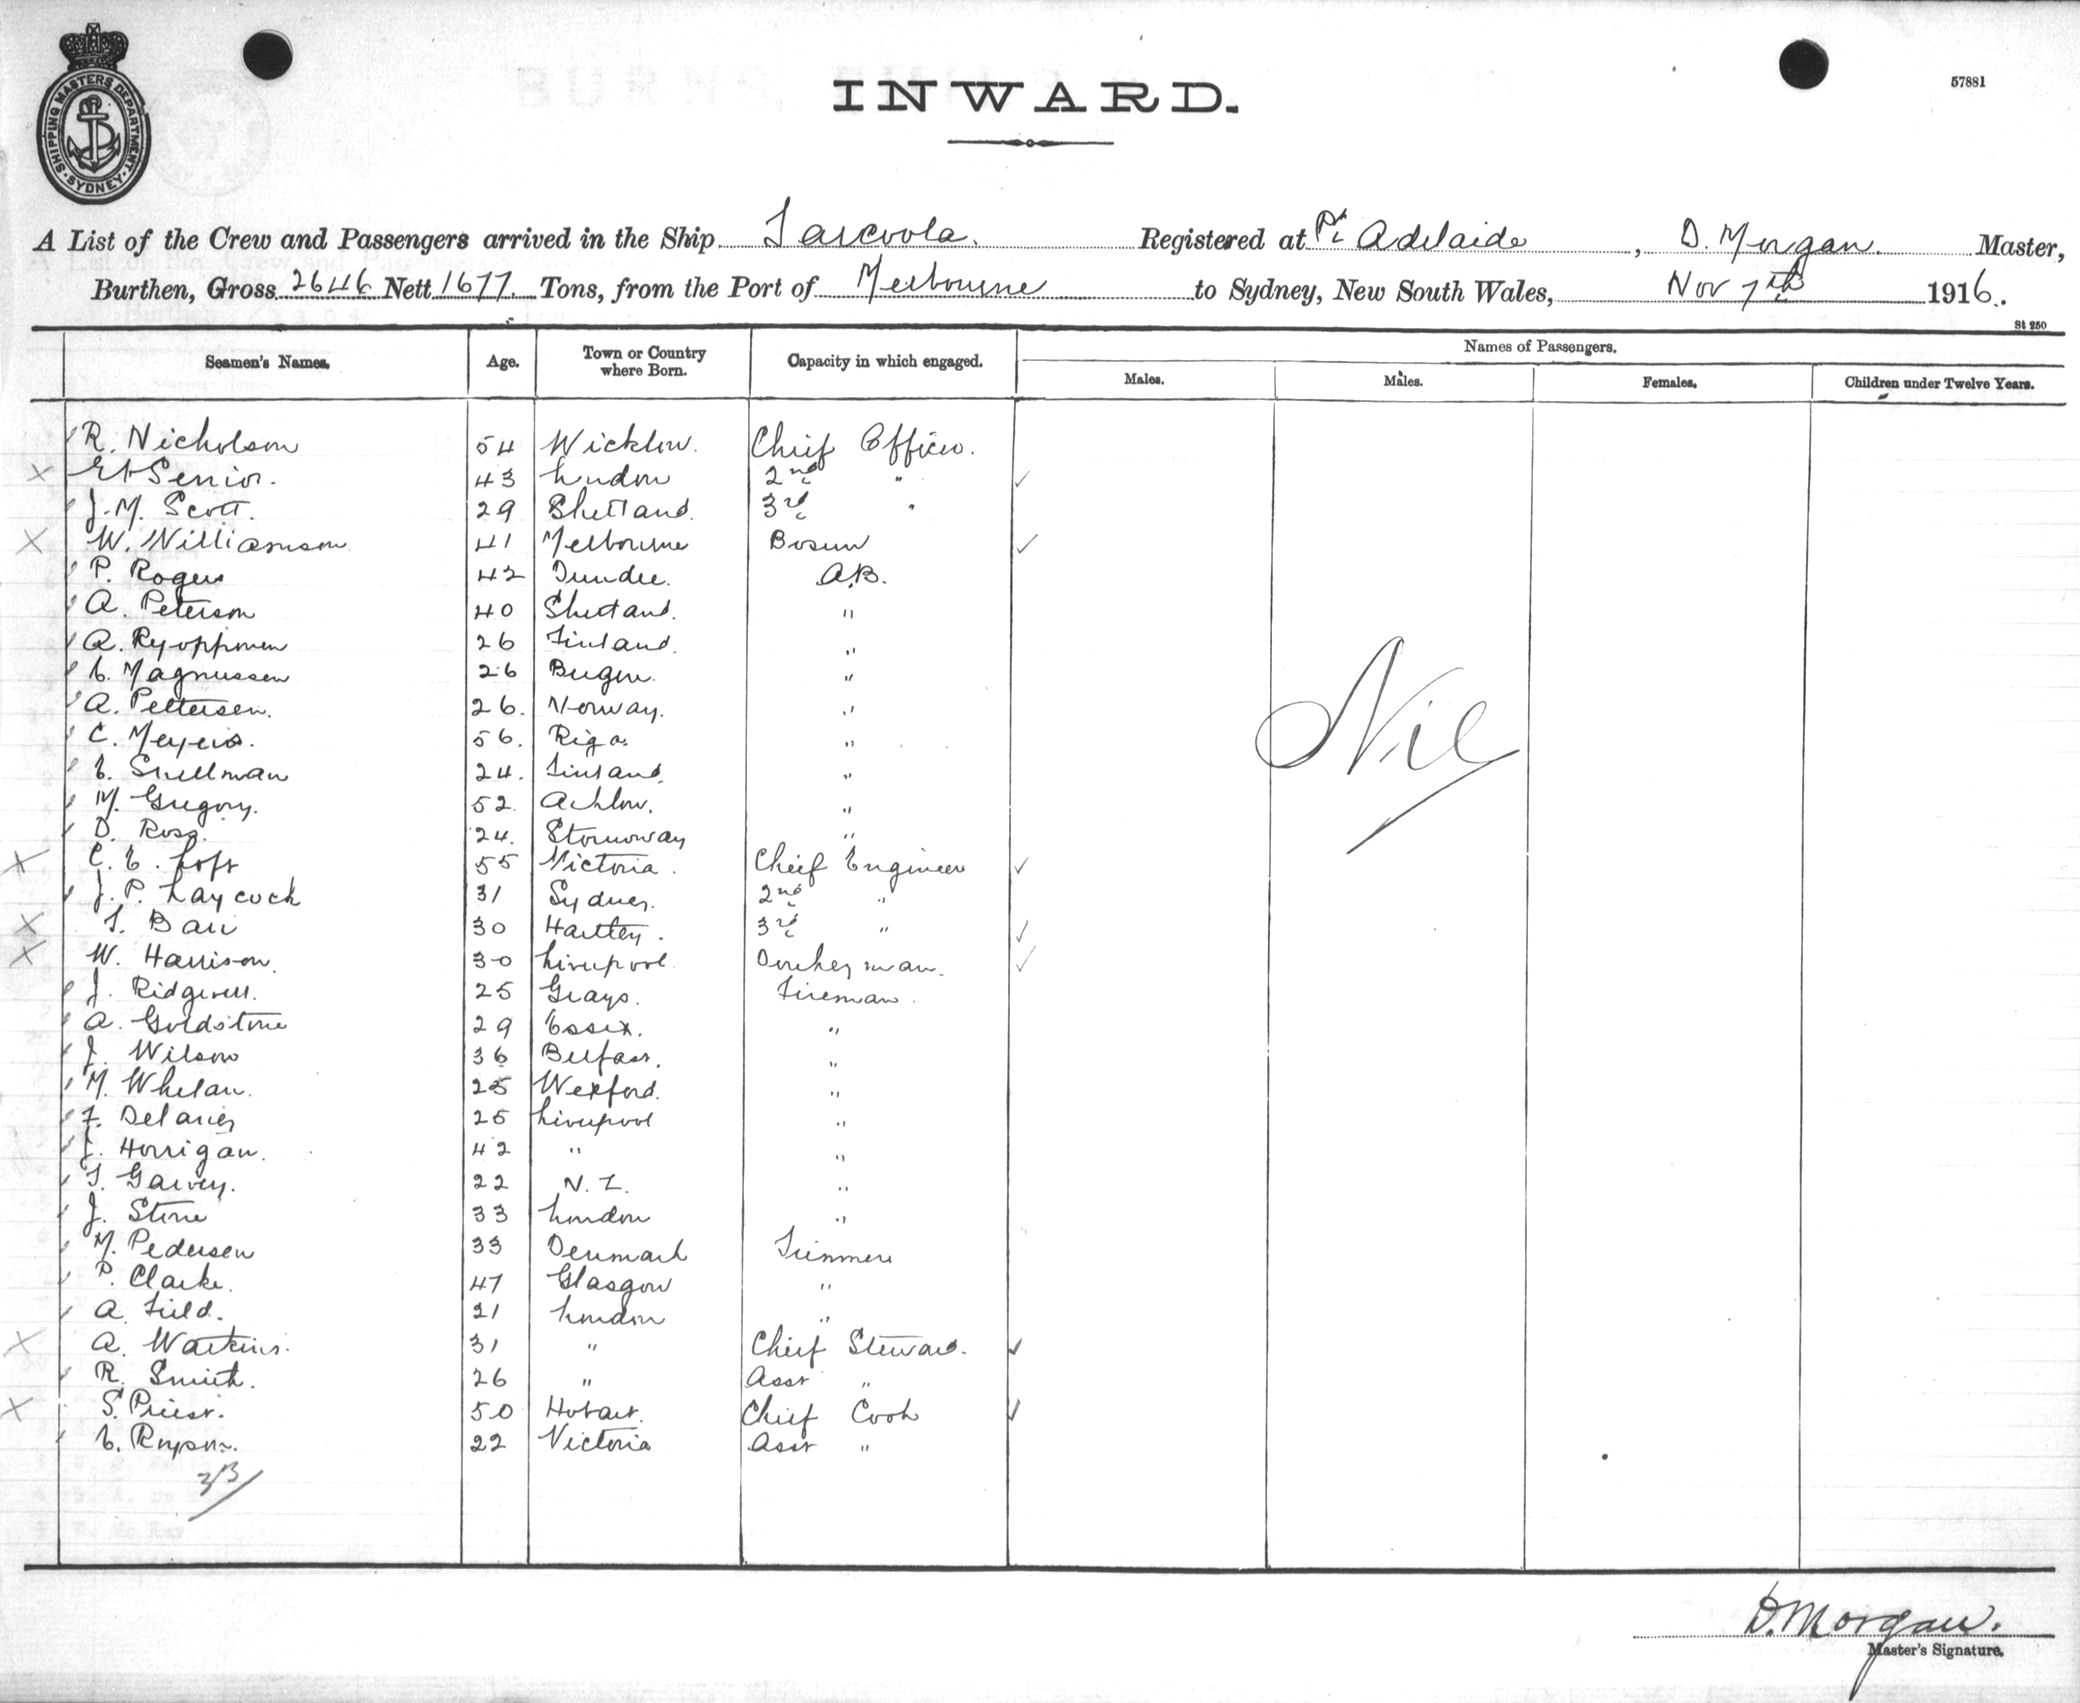 SHIPPING MASTERS DEPARTMENT
SYDNEY
57881
INWARD.
A List of the Crew and Passengers arrived in the Ship Tarcoola. Registered at Pt Adelaide, D. Morgan. Master,
Burthen, Gross 2646 Nett 1677. Tons, from the Port of Melbourne to Sydney, New South Wales, Nov 7th 1916.
St 250
Seamen's Names. Age. Town or Country where Born. Capacity in which engaged. Names of Passengers.
Males. Males. Females. Children under Twelve Years.
R. Nicholson 54 Wicklow. Chief Officer.
Senior. 43 London 2nd "
J. M. Scott. 29 Shetland. 3rd "
W. Williamson 41 Melbourne Bosun
P. Rogers 42 Dundee. A.B.
A. Peterson 40 Shetland. "
A. Ryopponen 26 Finland. "
E. Magnussen 26 Bergen. "
A. Pettersen. 26. Norway. "
C. Meyers. 56. Riga. "
E. Snellman 24. Finland. "
M. Gregory. 52. Arklow. "
D. Ross. 24. Stornoway "
C. E. Loft 55 Victoria. Chief Engineer
J. P. Laycock 31 Sydney. 2nd "
T. Barr 30 Hartley. 3rd "
W. Harrison. 30 Liverpool Donkeyman.
J. Ridgwell. 25 Grays. Fireman.
A. Goldstone 29 Essex. "
J. Wilson 36 Belfast. "
M. Whelan. 25 Wexford. "
F. Delaney 25 Liverpool "
J. Horrigan. 42 " "
T. Garvey. 22 N.Z. "
J. Stone 33 London "
M. Pedersen 33 Denmark Trimmers
P. Clarke. 47 Glasgow "
A. Field. 21 London "
A. Watkins. 31 " Chief Steward.
R. Smith. 26 " Asst "
S. Priest. 50 Hobart. Chief Cook
E. 22 Victoria Asst "
33
Nil
D. Morgan.
Master's Signature.